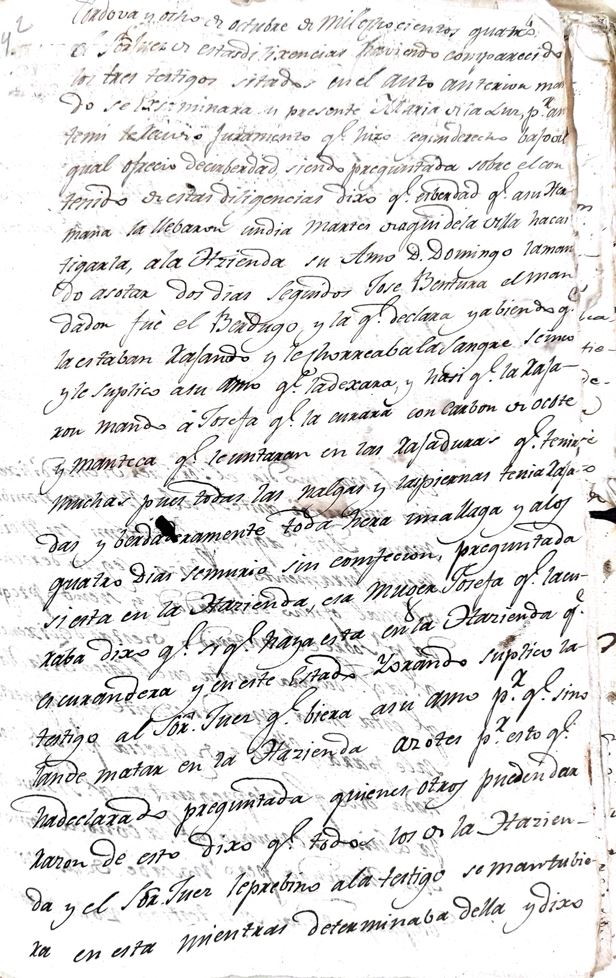 42
Cordova y ocho de octubre de mil ochocientos quatro
el Sôr Juez de estas dilixencias haviendo comparecido
los tres testigos sitados en el auto anterior man
do se Exseminara y presente Maria de la Luz, p.r an
temi le Juramento q.e hizo segun derecho bajo del
qual ofrecio decir berdad, siendo preguntada sobre el con
tenido de estas diligencias dixo q.e es berdad q.e a su Her
mana la llebaron un dia Martes de aqui de la villa ha cas
tigarla, a la Hazienda su Amo D. Domingo la man
do asotar dos dias seguidos Jose Bentura el man
dador fue el Berdugo, y la q.e declara y abiendo q.e
la estaban Rajando y le chorreaba la sangre se inco
y le suplico a su amo q.e la dexara, y hasi q.e la Raja-
ron mando á Josefa q.e la curara con carbon de ocote
y manteca q.e le untaran en las Rajaduras q.e tenia
muchas pues todas las nalgas y las piernas tenia Raja-
das y berdaderamente toda hera una llaga y a los
quatro dias se murio sin comfecion, preguntada
si esta en la Hazienda, esa Muger Josefa q.e la cu-
raba dixo q.e si q.e haya esta en la Hazienda q.e
es curandera y en este Estado Llorando suplico la
testigo al Sôr. Juez q.e biera a su amo p.r q.e sino
la an de matar en la Hazienda a azotes p.r esto q.e
ha declarado preguntada quienes otros pueden dar
Razon de esto dixo q.e todos los de la Hazien-
da y el Sôr. Juez le prebino a la testigo se mantubie-
ra en esta mientras determinaba della y dixo